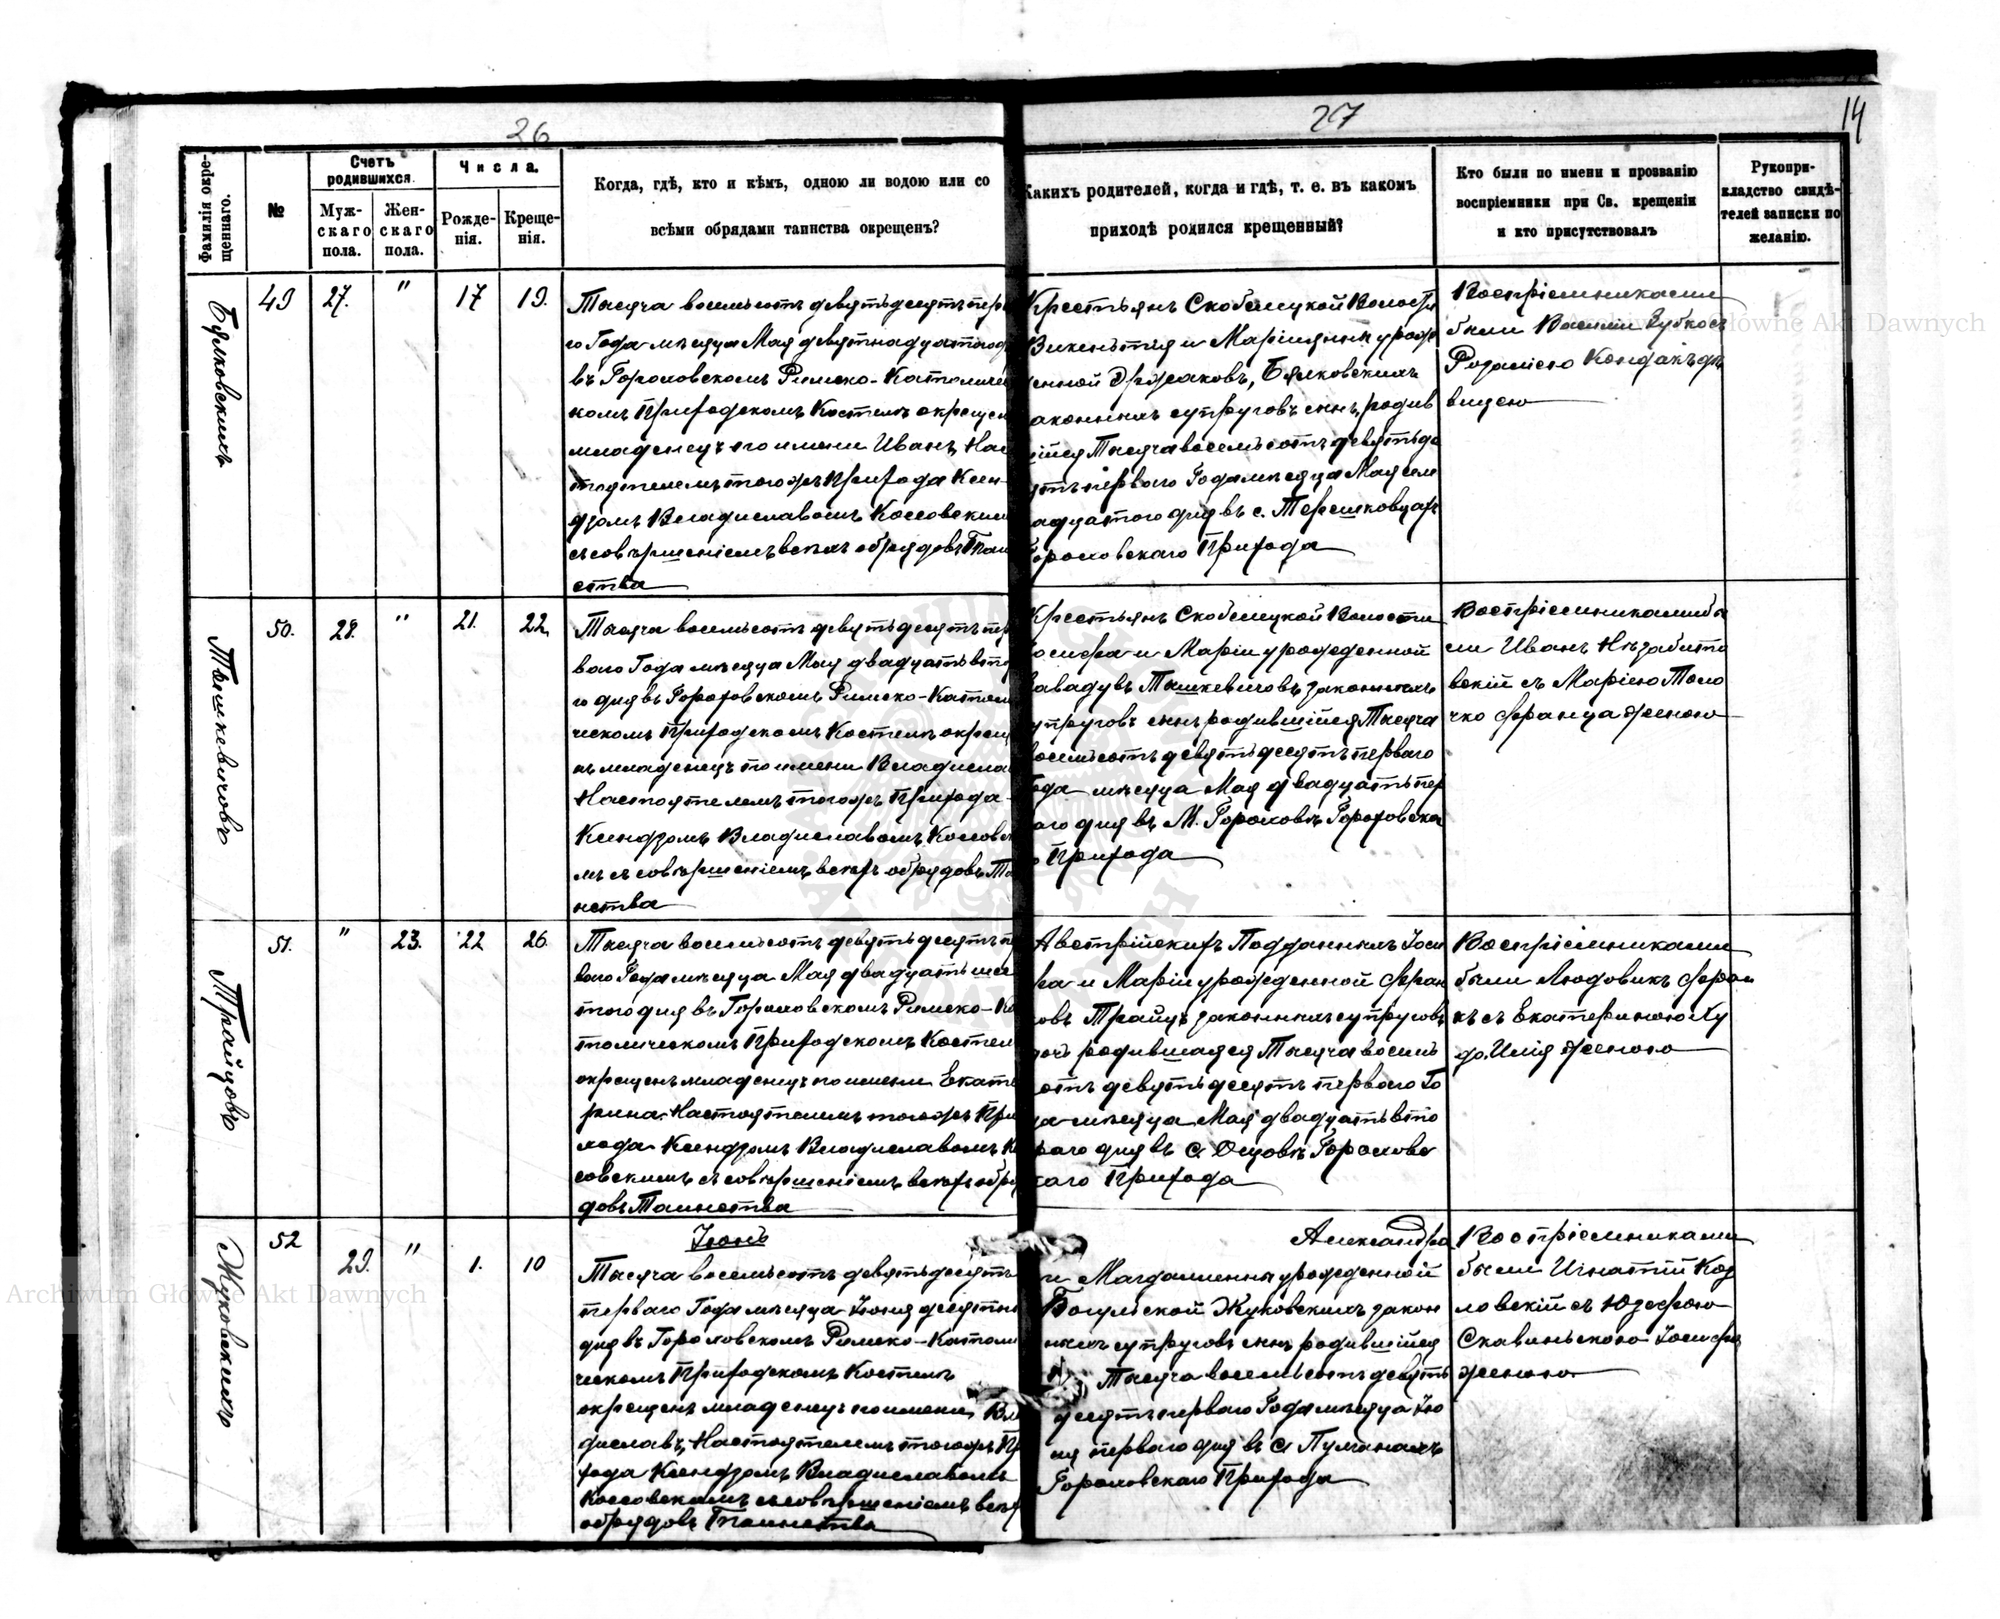 26
27
14
Фамилія окре-
щеннаго.
№
Счетъ
родившихся.
Муж-
скаго
пола.
Жен-
скаго
пола.
Числа.
Рожде-
нія.
Креще-
нія.
Когда, гдѣ, кто и кѣмъ, одною ли водою или со
всѣми обрядами таинства окрещенъ?
Какихъ родителей, когда и гдѣ, т. е. въ какомъ
приходѣ родился крещенный?
Кто были по имени и прозванію
воспріемники при Св. крещеніи
и кто присутствовалъ
Рукопри-
кладство свидѣ-
телей записки по
желанію.
Бялковскихъ
49 27. " 17 19.
Тысяча восемьсотъ девятьдесятъ пер
го Года мѣсяца Мая девятнадцатаго д
въ Гороховскомъ Римско-Католичес
комъ Приходскомъ Костелѣ окрещен
младенецъ по имени Иванъ, Нас
тоятелемъ тогожъ Прихода Ксен-
дзомъ Владиславомъ Коссовским
съ совершеніемъ всѣхъ обрядовъ Таин
ства
Крестьянъ Скобелцкой Волости
Викентія и Маріянны урож
енной Држаковъ, Бялковскихъ
аконныхъ супруговъ сынъ, родив
шійся Тысяча восемьсотъ девятьде
ятъ перваго Года мѣсяца Мая сем
адцатого дня въ с. Терешковцахъ
Гороховскаго Прихода
Воспріемниками
были Василій Зубкось
Розаліею Кондакъ дѣ
вицею
Тышкевичовъ
50. 28. " 21. 22.
Тысяча восемьсотъ девятьдесятъ пер
ваго Года мѣсяца Мая двадцать вто
го дня въ Гороховскомъ Римско-Католи
ческомъ Приходскомъ Костелѣ окрещ
нъ младенецъ по имени Владислав
Настоятелемъ тогожъ Прихода
Ксендзомъ Владиславомъ Коссовск
мъ съ совершеніемъ всѣхъ обрядовъ Та
инства
Крестьянъ Скобелцкой Волости
осифа и Маріи урожденной
авадувъ Тышкевичовъ, законныхъ
упруговъ сынъ родившійся Тысяча
восемьсотъ девятьдесятъ перваго
Года мѣсяца Мая двадцать пер
аго дня въ М. Гороховѣ Гороховска
о Прихода
Воспріемниками бы
ли Иванъ Незабито
вскій съ Маріею Толо
чко Франца женою
Трайцовъ
51. " 23. 22 26.
Тысяча восемьсотъ девятьдесятъ п
ваго Года мѣсяца Мая двадцать шес
того дня въ Гороховскомъ Римско-Ка
толическомъ Приходскомъ Костел
окрещенъ младенецъ по имени Екате
рина. Настоятелемъ тогожъ При
хода Ксендзомъ Владиславомъ Ко
совскимъ съ совершеніемъ всѣхъ обря
довъ Таинства
Австрійскихъ Подданныхъ Іоси
фа и Маріи урожденной Фран
ковъ Трайцъ законныхъ супруговъ
дочь родившаяся Тысяча восемь
сотъ девятьдесятъ перваго Го
да мѣсяца Мая двадцать вто
раго дня въ с. Ощовѣ Горохово
каго Прихода
Воспріемниками
были Людовикъ Фран
къ съ Екатериною Ку
женою
Жуковскихъ
52 29. " 1. 10
Іюнь
Тысяча восемьсотъ девятьдесятъ
перваго Года мѣсяца Іюня десятаго
дня въ Гороховскомъ Римско-Католи
ческомъ Приходскомъ Костелѣ
окрещенъ младенецъ по имени Вла
диславъ, Настоятелемъ тогожъ Пр
хода Ксендзомъ Владиславомъ
Коссовскимъ съ совершеніемъ всѣх
обрядовъ Таинства
Александра
и Магдалены урожденной
Богульской Жуковскихъ закон
ныхъ супруговъ сынъ родившійся
Тысяча восемьсотъ девять
десятъ перваго Года мѣсяца Ію
ня перваго дня въ с. Пулганахъ
Гороховскаго Прихода
Воспріемниками
были Игнатій Коз
ловскій съ Юзефою
Скавинскою Іосифа
женою
Archiwum Główne Akt Dawnych
Archiwum Główne Akt Dawnych